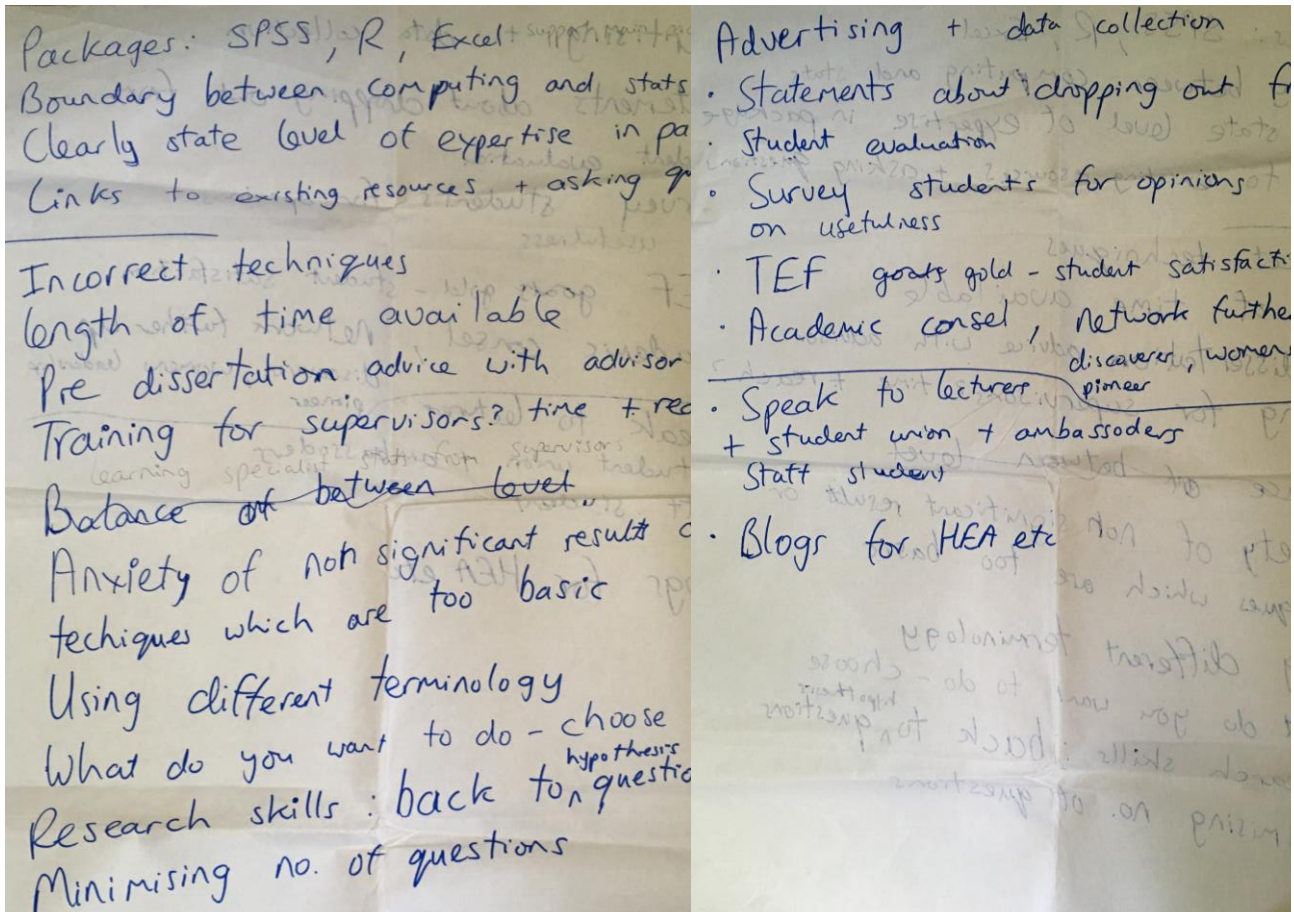 Packages: SPSS, R, Excel
Boundary between computing and stats
Clearly state level of expertise in pa
Links to existing resources + asking qu
Incorrect techniques
length of time available
Pre dissertation advice with advisor
Training for supervisors? time + rec
learning specialist supervisors
Balance of between level
Anxiety of non significant result o
techiques which are too basic
Using different terminology
What do you want to do - choose
hypothesis
Research skills : back to ^ questio
Minimising no. of questions
Advertising + data collection
· Statements about dropping out fr
· Student evaluation
· Survey students for opinions
on usefulness
· TEF goats gold - student satisfacti
· Academic consel, network further
discoverer, womens
pioneer
· Speak to lecturers
+ student union + ambassoders
Staff student
· Blogs for HEA etc